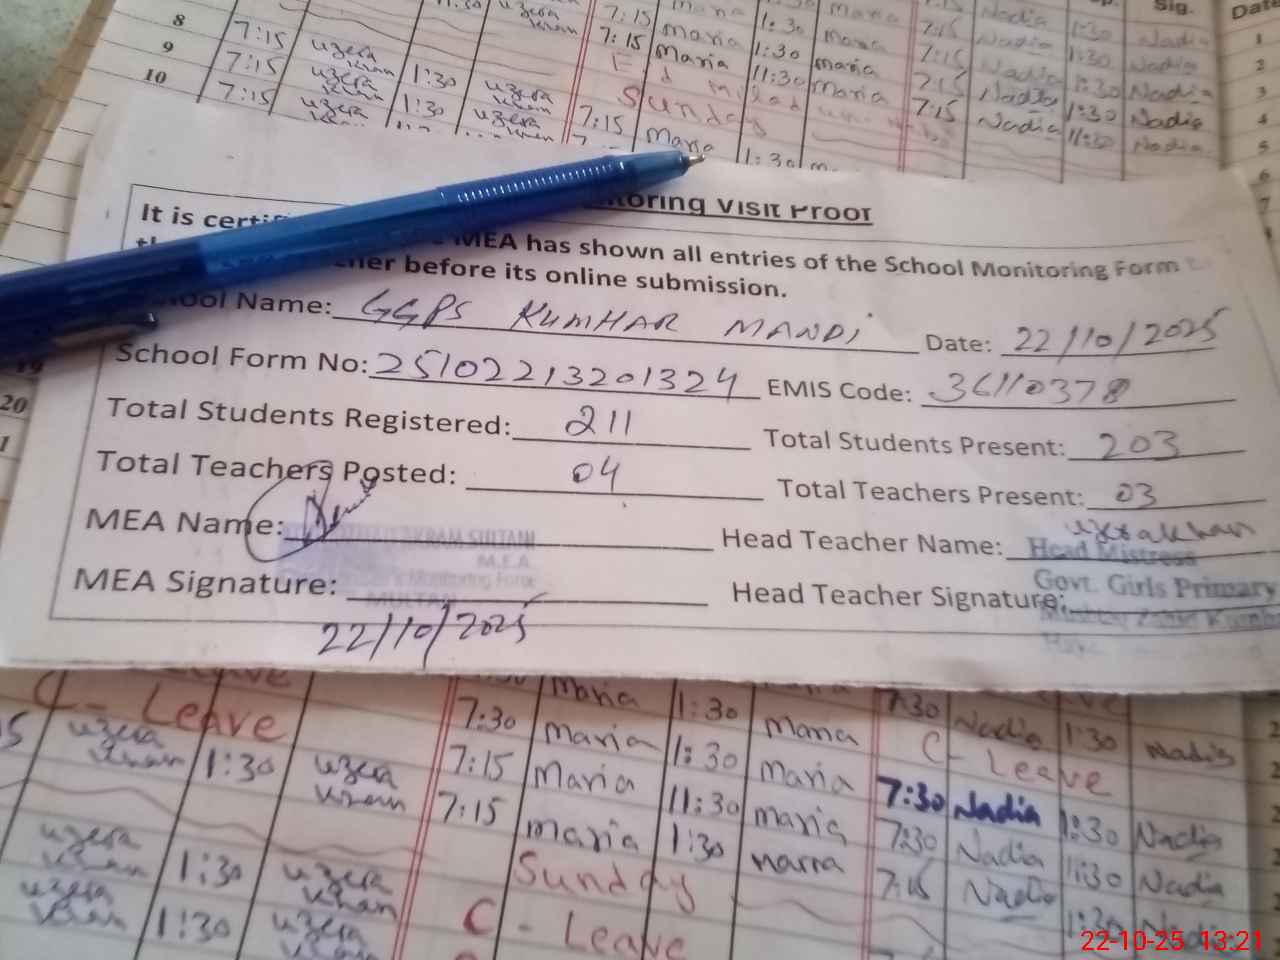 Sig.
Date
8 7:15 uzera khan 7:15 maria 1:30 maria 7:15 Nadia 1:30 Nadia 1
9 7:15 uzera khan 1:30 uzera khan 7:15 maria 1:30 maria 7:15 Nadia 1:30 Nadia 2
10 7:15 uzera khan 1:30 uzera khan Eid Milad 11:30 maria 7:15 Nadia 1:30 Nadia 3
Sunday 7:15 Nadia 11:30 Nadia 4
7:15 maria 1:30 5
6
7
toring Visit Proof
It is certi MEA has shown all entries of the School Monitoring Form
her before its online submission.
ool Name: GGPS KUMHAR MANDI Date: 22/10/2025
School Form No: 25102213201324 EMIS Code: 36110378
Total Students Registered: 211 Total Students Present: 203
Total Teachers Posted: 04 Total Teachers Present: 03
MEA Name: Head Teacher Name: uzerakhan
AKRAM SULTANI
M.E.A
Monitoring Force
MULTAN
Head Mistress
Govt. Girls Primary
MEA Signature: Head Teacher Signature:
22/10/2025
19
20
1
C - Leave 7:30 maria 1:30 maria 7:30 Nadia 1:30 Nadia
uzera khan 1:30 uzera khan 7:15 maria 1:30 maria C - Leave
7:15 maria 11:30 maria 7:30 Nadia 1:30 Nadia
uzera khan 1:30 uzera khan maria 1:30 maria 7:30 Nadia 11:30 Nadia
Sunday 7:15 Nadia 1:30 Nadia
uzera khan 1:30 uzera khan C - Leave
22-10-25 13:21